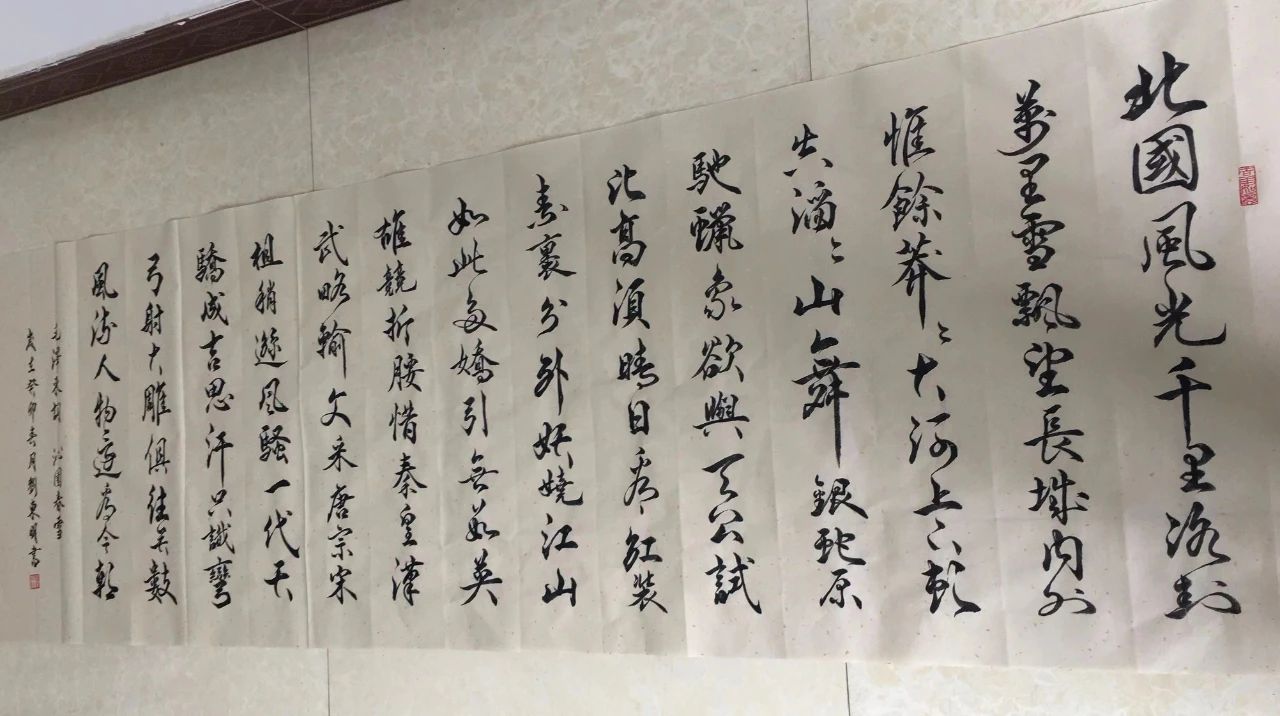 北國風光千里冰封
萬里雪飄望長城内外
惟餘莽〻大河上下頓
失滔〻山舞銀蛇原
馳蠟象欲與天公試
比高須晴日看紅裝
素裹分外妖嬈江山
如此多嬌引無數英
雄競折腰惜秦皇漢
武略輸文采唐宗宋
祖稍遜風騷一代天
驕成吉思汗只識彎
弓射大雕俱往矣數
風流人物還看今朝
毛澤東詞 沁園春雪
歲在癸卯春月劉東明書